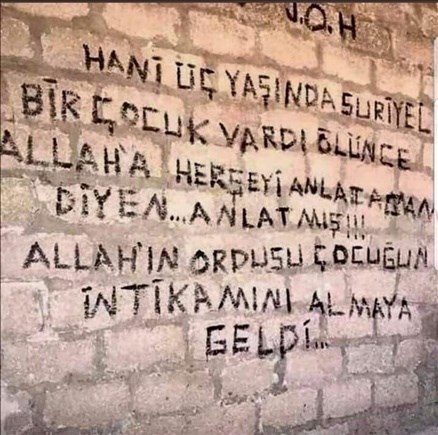 J.Ö.H
HANİ ÜÇ YAŞINDA SURİYEL
BİR ÇOCUK VARDI ÖLÜNCE
ALLAH'A HERŞEYİ ANLATACAM
DİYEN...ANLATMIŞ!!!
ALLAH'IN ORDUSU ÇOCUĞUN
İNTİKAMINI ALMAYA
GELDİ...